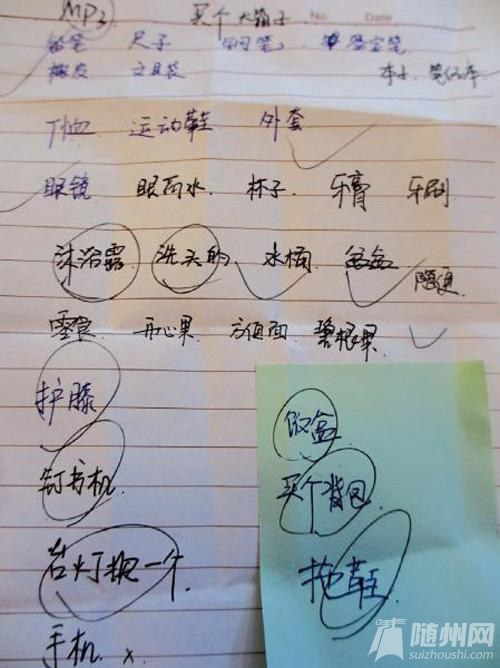 MP3 买个大箱子 No Date
铅笔 尺子 钢笔 签字笔
橡皮 文具袋 本子 笔记本
T恤 运动鞋 外套
眼镜 眼药水 杯子 牙膏 牙刷
沐浴露 洗头的 水桶 随便
零食 开心果 方便面 碧根果
护膝
钉书机
台灯换一个
手机 x
饭盒
买个背包
拖鞋
随州网
suizhoushi.com